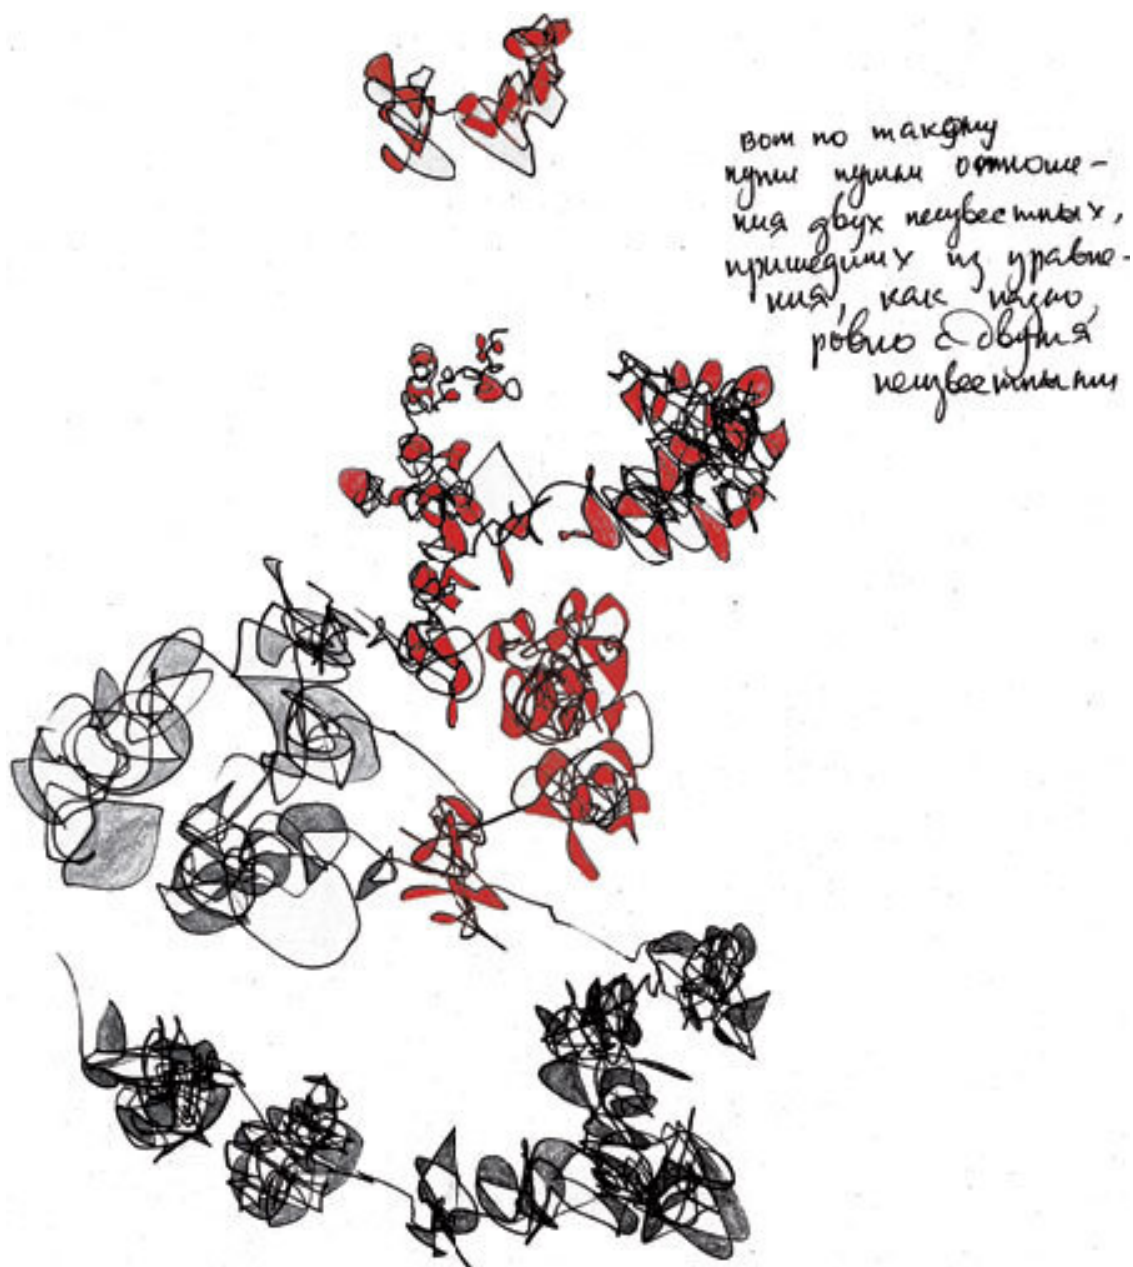 вот по такому
пути пушли отноше-
ния двух неизвестных,
пришедших из уравне-
ния, как назло,
ровно с двумя
неизвестными